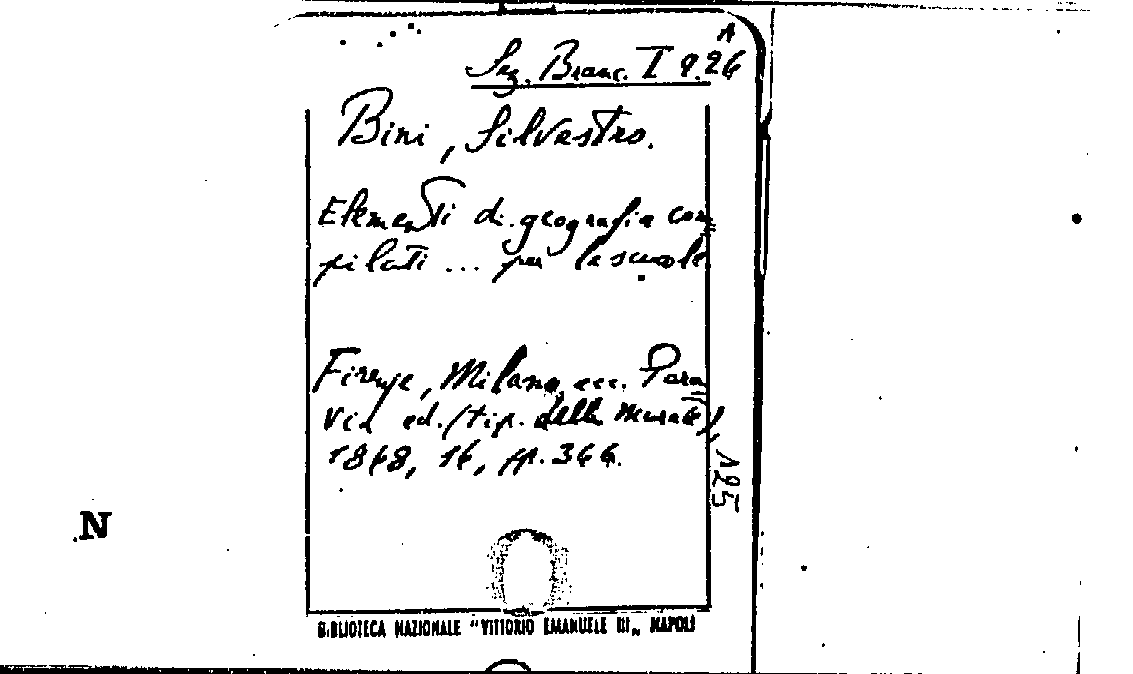 A
Sez. Branc. I 9.26
Bini, Silvestro.
Elementi di geografia com=
pilati ... per le scuole
Firenze, Milano, ecc. Para=
via ed. (tip. delle Murate),
1868, 16, pp. 366.
125
N
BIBLIOTECA NAZIONALE "VITTORIO EMANUELE III„ NAPOLI